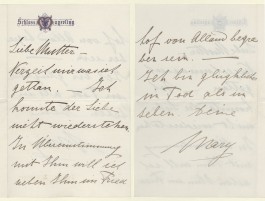 Schloss Mayerling
Liebe Mutter –
Verzeiht mir was ich
gethan. – Ich
konnte der Liebe
nicht wiederstehen
In Übereinstimmung
mit Ihm will ich
neben Ihm im Fried
hof von Alland begra
ben sein. –
Ich bin glücklicher
im Tod als im
Leben. Deine
Mary